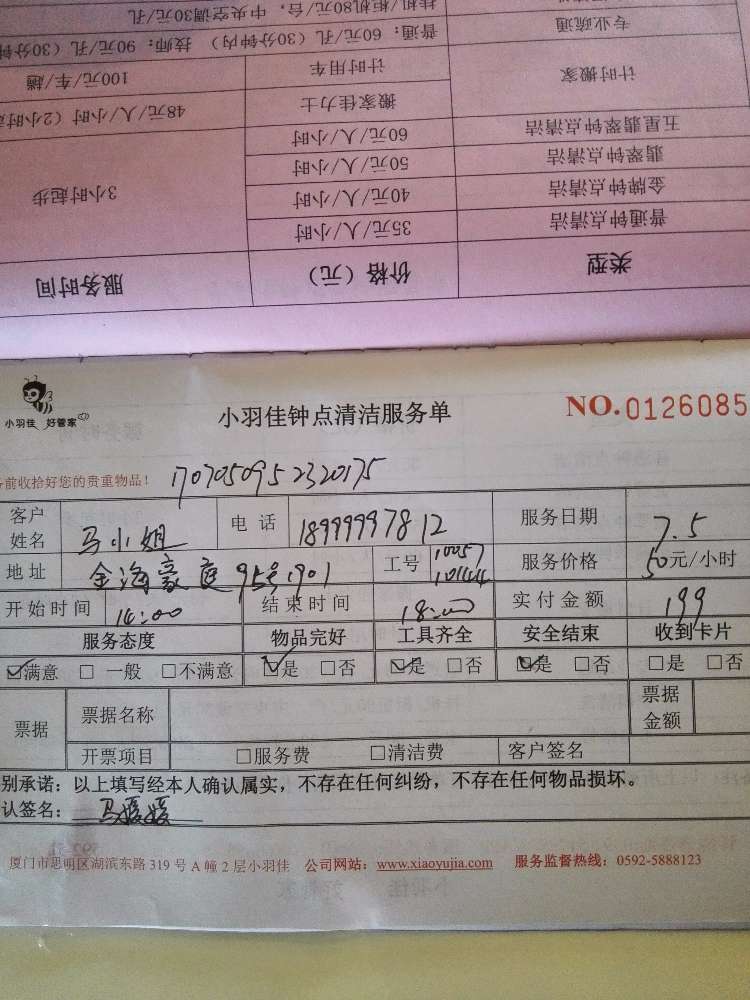 挂机/柜机80元/台，中央空调30元/孔
专业疏通 普通：60元/孔（30分钟内） 技师：90元/孔（30分钟
计时搬家 计时用车 100元/车/趟
搬家佳力士 48元/人/小时（2小时
五星翡翠钟点清洁 60元/人/小时
翡翠钟点清洁 50元/人/小时
金牌钟点清洁 40元/人/小时 3小时起步
普通钟点清洁 35元/人/小时
类型 价格（元） 服务时间
小羽佳 好管家
小羽佳钟点清洁服务单
NO.0126085
前收拾好您的贵重物品！ 1707050952320175
客户姓名 马小姐 电话 18999997812 服务日期 7.5
地址 金海豪庭95号1901 工号 10057 10144 服务价格 50元/小时
开始时间 14:00 结束时间 18:00 实付金额 199
服务态度 物品完好 工具齐全 安全结束 收到卡片
☑满意 □一般 □不满意 ☑是 □否 ☑是 □否 ☑是 □否 □是 □否
票据 票据名称 票据金额
开票项目 □服务费 □清洁费 客户签名
别承诺：以上填写经本人确认属实，不存在任何纠纷，不存在任何物品损坏。
认签名：马媛媛
厦门市思明区湖滨东路319号A幢2层小羽佳 公司网站：www.xiaoyujia.com 服务监督热线：0592-5888123